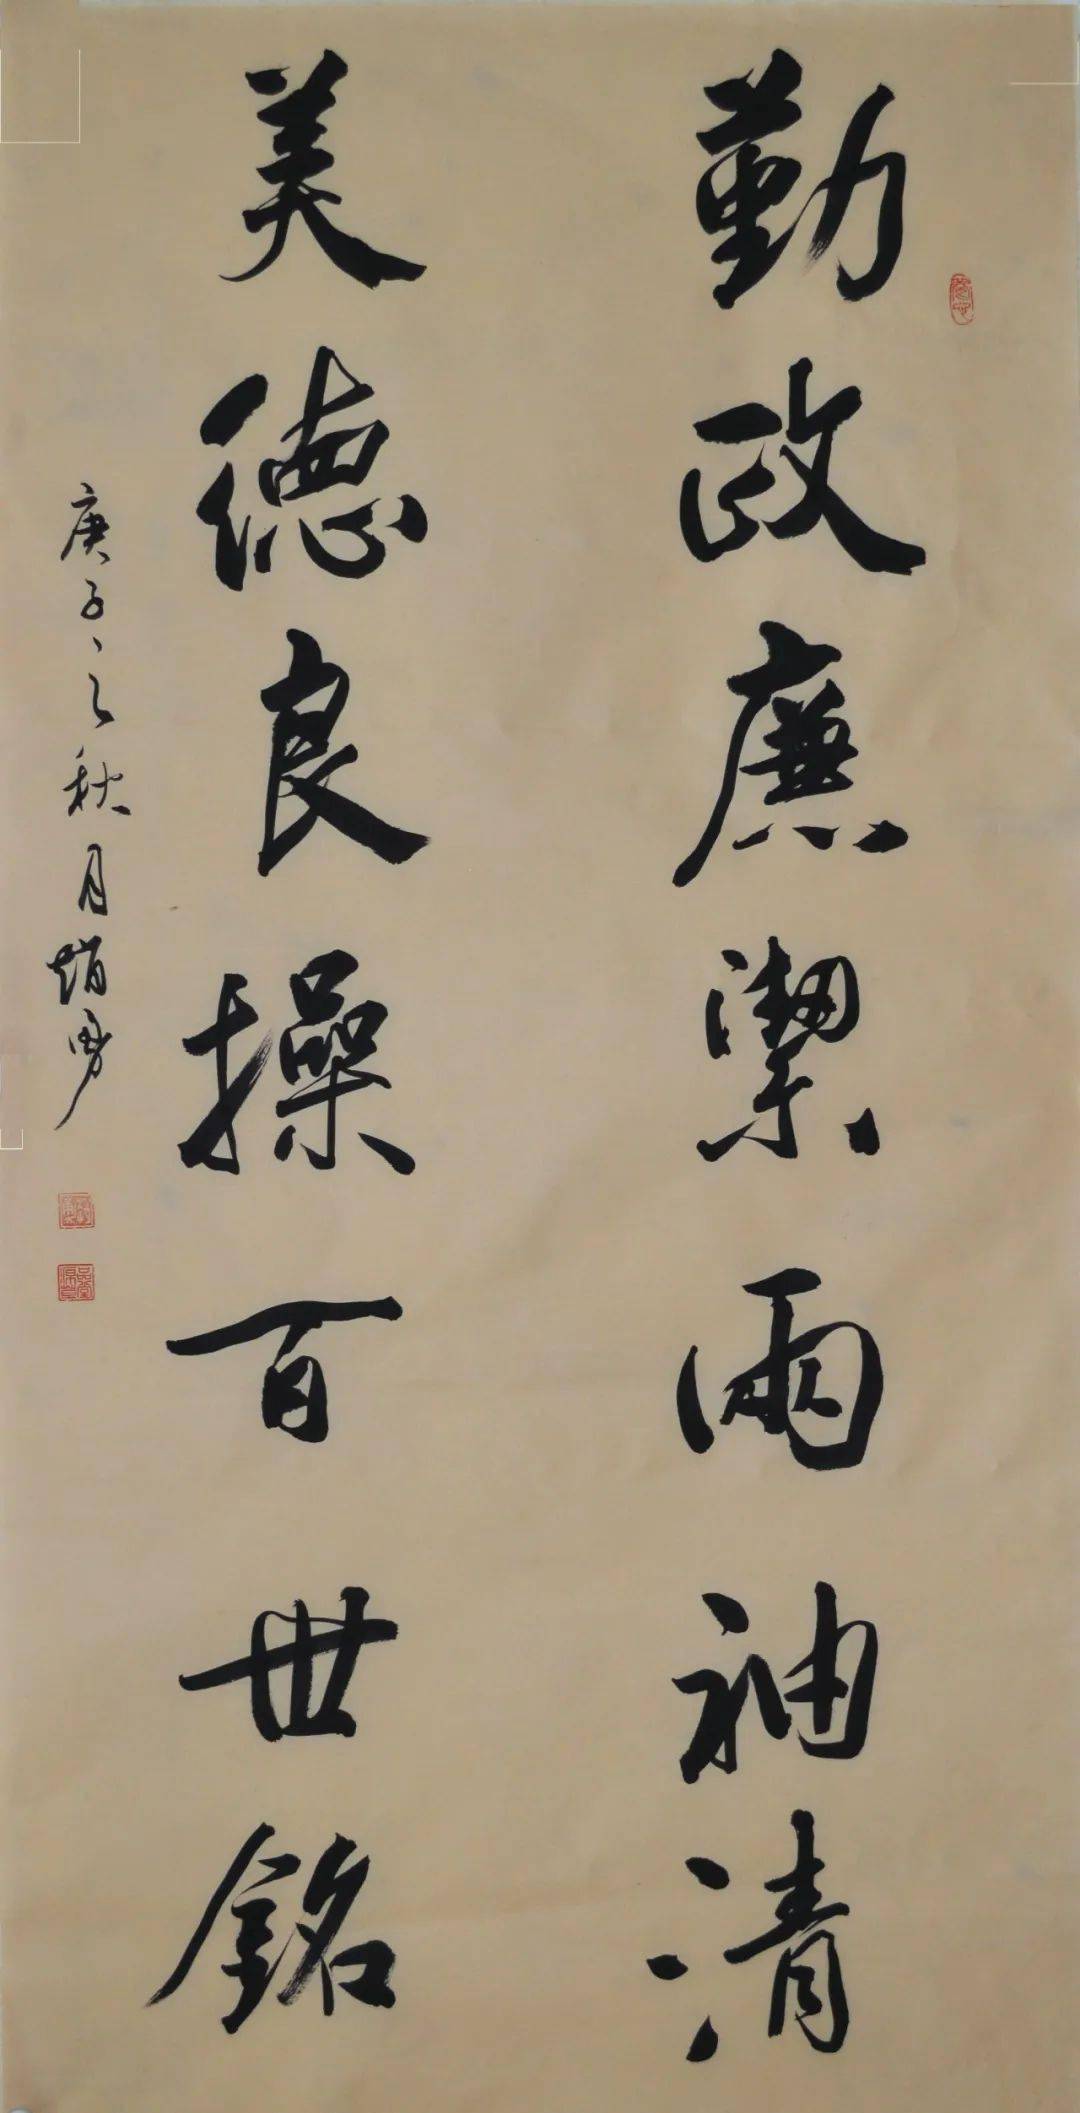 勤政廉潔兩袖清
美德良操百世銘
庚子之秋月趙勇